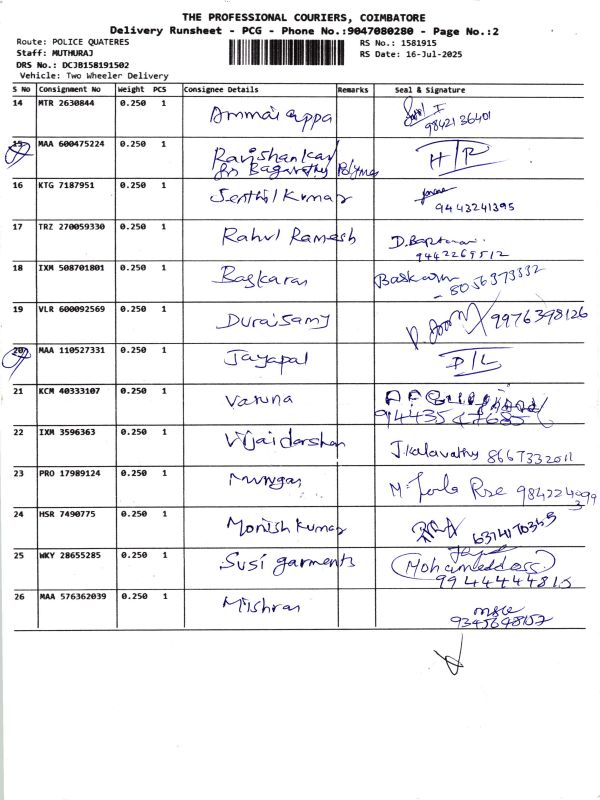 THE PROFESSIONAL COURIERS, COIMBATORE
Delivery Runsheet - PCG - Phone No.:9047080280 - Page No.:2
Route: POLICE QUATERES
RS No.: 1581915
Staff: MUTHURAJ
RS Date: 16-Jul-2025
DRS No.: DCJB158191502
Vehicle: Two Wheeler Delivery
S No Consignment No Weight PCS Consignee Details Remarks Seal & Signature
14 MTR 2630844 0.250 1 Ammaiappa
9842136401
15 MAA 600475224 0.250 1 Ravishankar H/R
Sri Bagavathy Polymer
16 KTG 7187951 0.250 1 Senthil Kumar
9443241395
17 TRZ 270059330 0.250 1 Rahul Ramesh
9442269512
18 IXM 508701801 0.250 1 Baskaran Baskaran
- 8056373332
19 VLR 600092569 0.250 1 Duraisamy 9976398126
20 MAA 110527331 0.250 1 Jayapal D/L
21 KCM 40333107 0.250 1 Varuna
22 IXM 3596363 0.250 1 Vijai darshan J.Kalavathy 8667332011
23 PRO 17989124 0.250 1 Murugan
24 HSR 7490775 0.250 1 Monish Kumar 6374170345
25 WKY 28655285 0.250 1 Susi garments Mohameddoss
9944444815
26 MAA 576362039 0.250 1 Mishran
9345648152